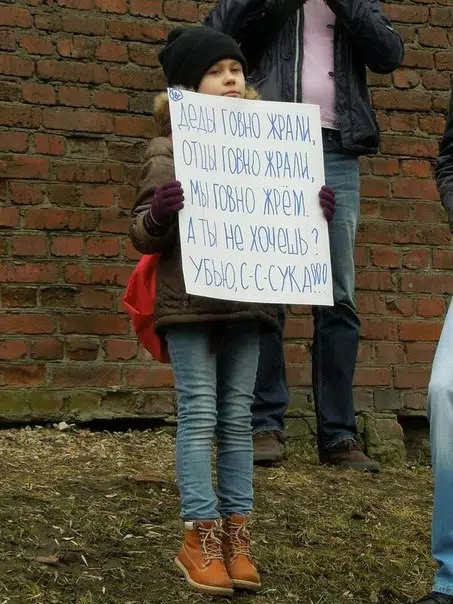 ДЕДЫ ГОВНО ЖРАЛИ,
ОТЦЫ ГОВНО ЖРАЛИ,
МЫ ГОВНО ЖРЁМ.
А ТЫ НЕ ХОЧЕШЬ?
УБЬЮ, С-С-СУКА!!!